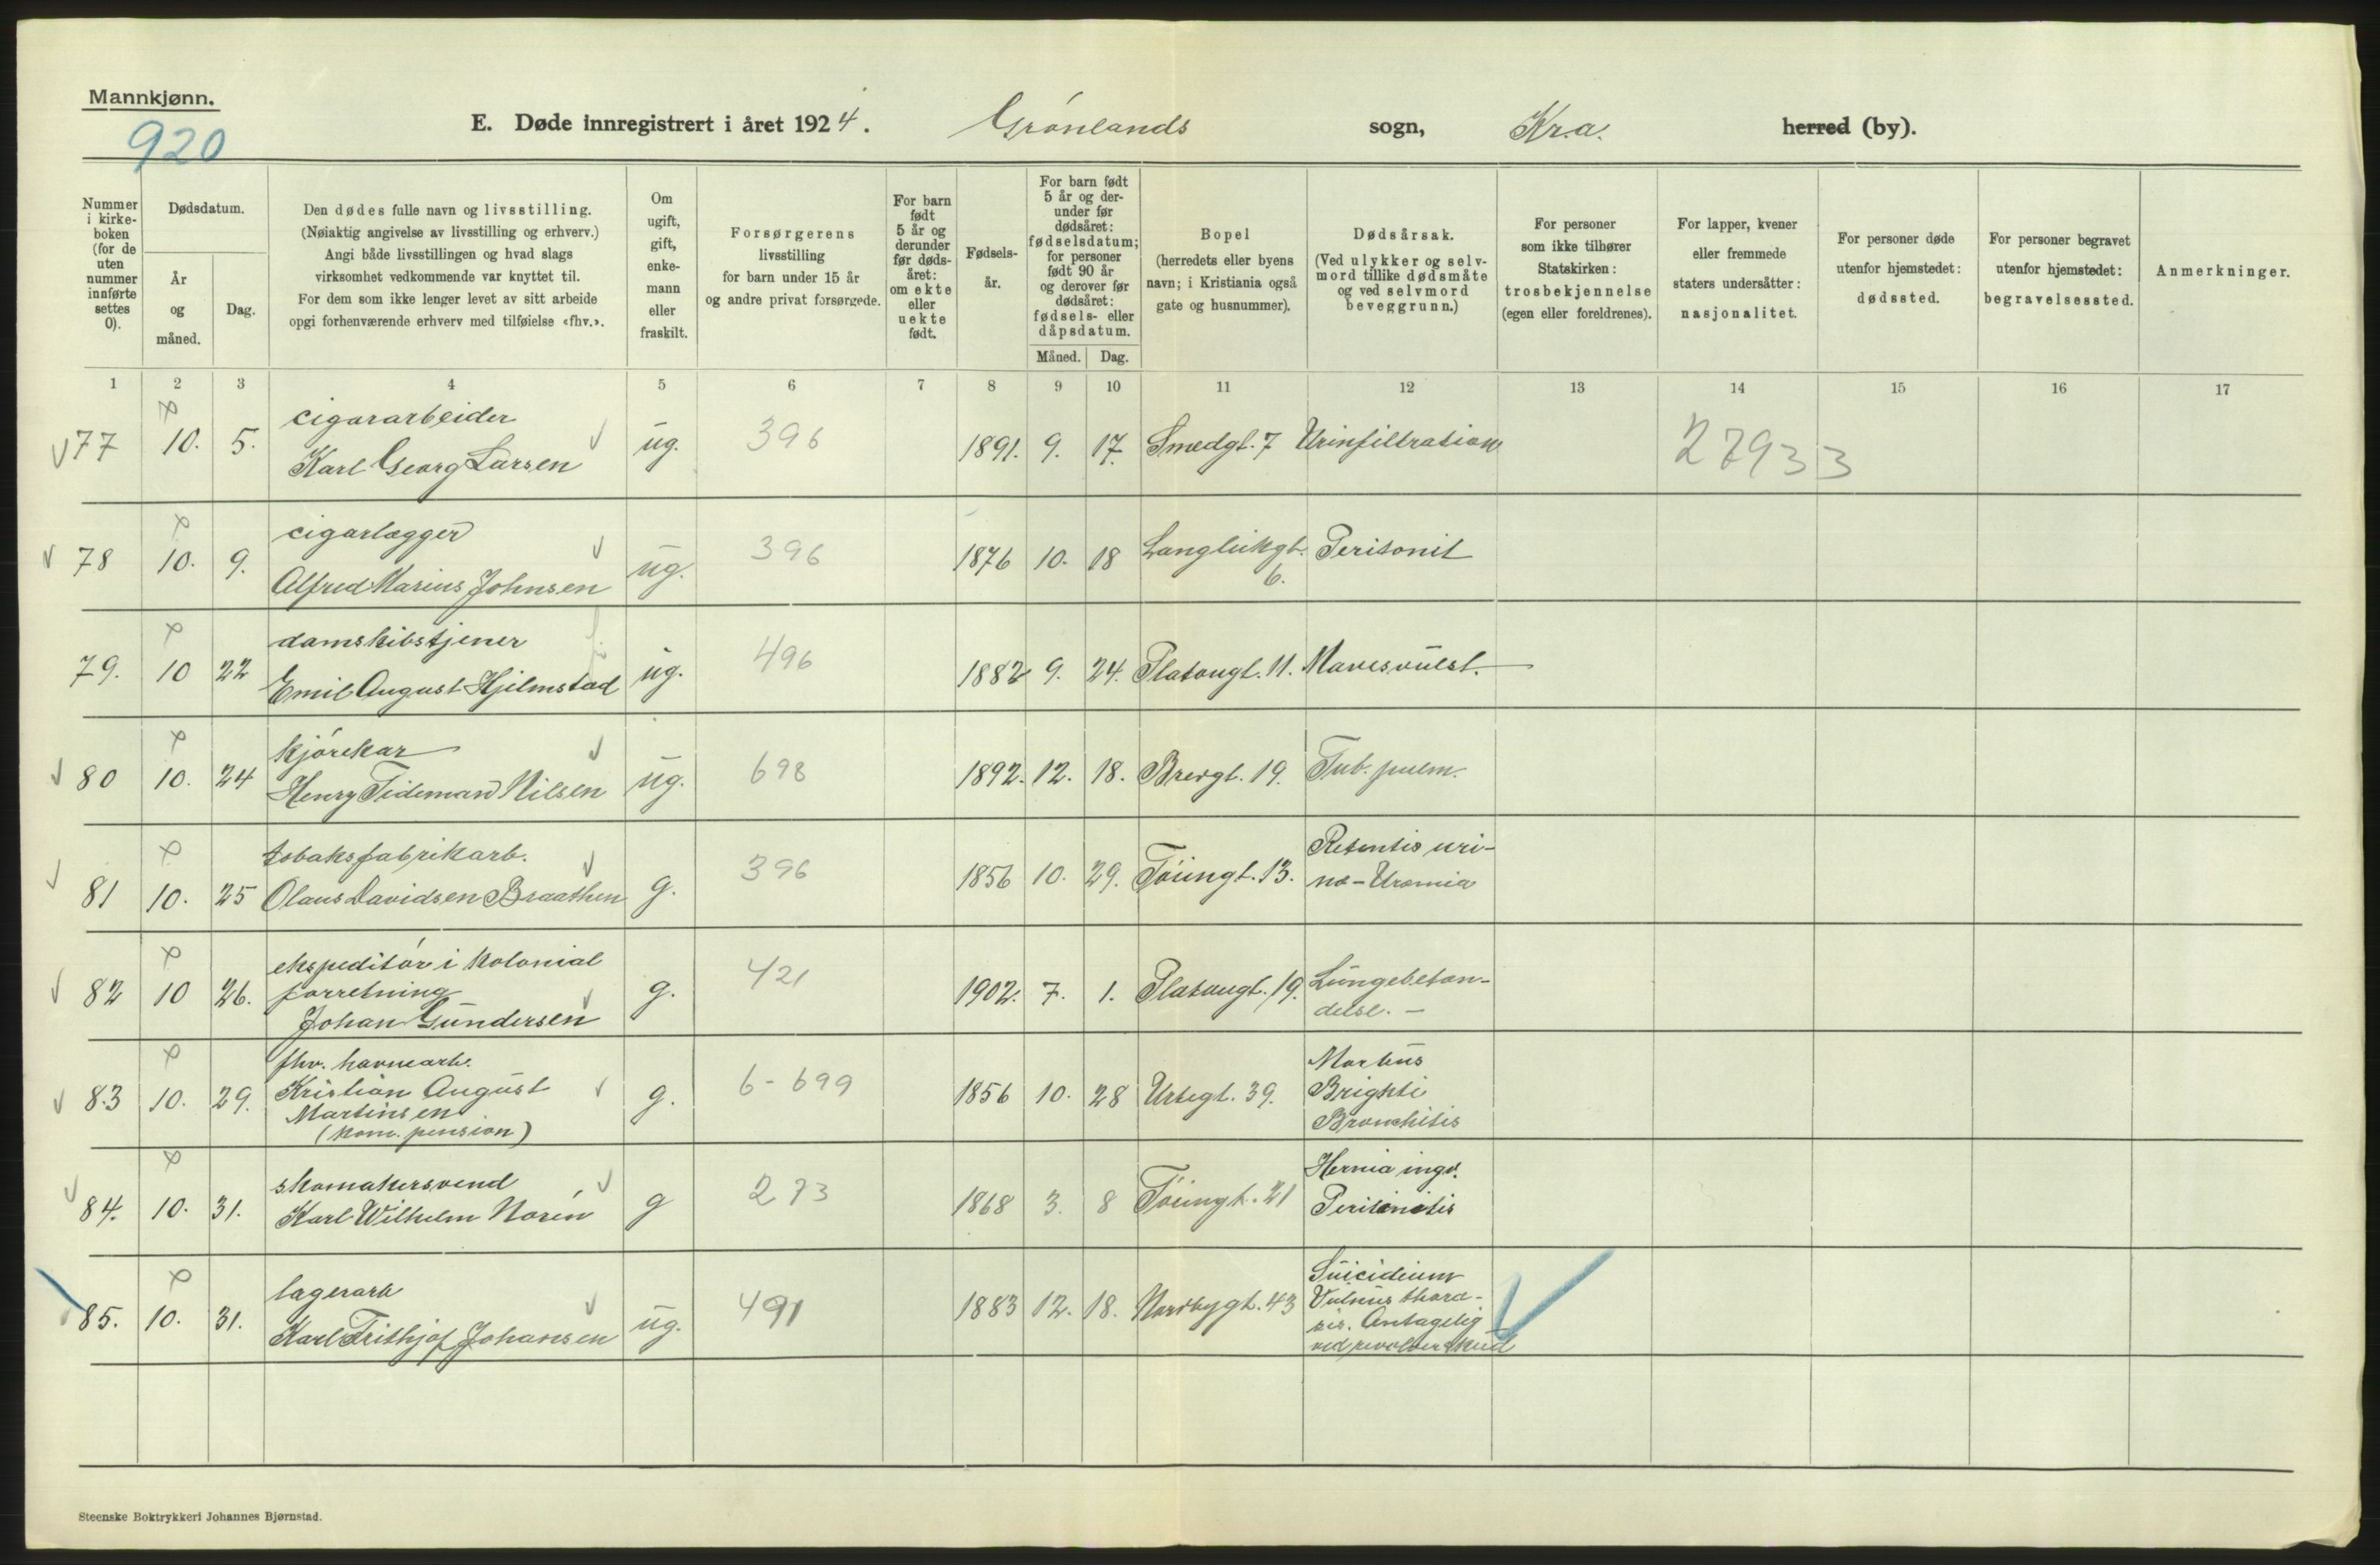 Mannkjønn.
920
E. Døde innregistrert i året 1924. Grønlands sogn, Kr.a. herred (by).
Nummer i kirke-boken (for de uten nummer innførte settes 0).
Dødsdatum.
År og måned.
Dag.
Den dødes fulle navn og livsstilling.
(Nøiaktig angivelse av livsstilling og erhverv.)
Angi både livsstillingen og hvad slags
virksomhet vedkommende var knyttet til.
For dem som ikke lenger levet av sitt arbeide
opgi forhenværende erhverv med tilføielse «fhv.».
Om ugift, gift, enke-mann eller fraskilt.
Forsørgerens
livsstilling
for barn under 15 år
og andre privat forsørgede.
For barn født 5 år og derunder før døds-året: om ekte eller uekte født.
Fødsels-år.
For barn født 5 år og der-under før dødsåret: fødselsdatum; for personer født 90 år og derover før dødsåret: fødsels- eller dåpsdatum.
Måned. Dag.
Bopel
(herredets eller byens
navn; i Kristiania også
gate og husnummer).
Dødsårsak.
(Ved ulykker og selv-
mord tillike dødsmåte
og ved selvmord
beveggrunn.)
For personer
som ikke tilhører
Statskirken:
trosbekjennelse
(egen eller foreldrenes).
For lapper, kvener
eller fremmede
staters undersåtter:
nasjonalitet.
For personer døde
utenfor hjemstedet:
dødssted.
For personer begravet
utenfor hjemstedet:
begravelsessted.
Anmerkninger.
1 2 3 4 5 6 7 8 9 10 11 12 13 14 15 16 17
cigararbeider
77 10. 5. Karl Georg Larsen ug. 396 1891. 9. 17. Smedgt. 7 Urinfiltration 27933
cigarlægger
78 10. 9. Alfred Marius Johnsen ug. 396 1876 10. 18 Langleikgt. 6. Peritonit
damskibstjener
79. 10 22 Emil August Hjelmstad ug. 496 1882 9. 24. Platougt. 11. Mavesvulst.
kjørekar
80 10. 24 Henry Tideman Nilsen ug. 698 1892. 12. 18. Breigt. 19. Tub. pulm.
tobaksfabrikarb.
81 10. 25 Olaus Davidsen Braathen g. 396 1856 10. 29. Tøiengt. 13. Retentio uri-
næ - Uræmia
ekspeditør i kolonial
forretning
82 10 26. Johan Gundersen g. 421 1902. 7. 1. Platougt. 19. Lungebetæn-
delse. -
fhv. havnearb.
83 10. 29. Kristian August
Martinsen
(kom. pension) g. 6-699 1856 10. 28 Urtegt. 39. Morbus
Brighti
Bronchitis
skomakersvend
84. 10. 31. Karl Wilhelm Norén g 273 1868 3. 8 Tøiengt. 21 Hernia ingv.
Peritonitis
lagerarb
85. 10. 31. Karl Frithjof Johansen ug. 491 1883 12. 18. Nordbygt. 43 Suicidium
Vulnus thora-
sis. Antagelig
ved revolverskud
Steenske Boktrykkeri Johannes Bjørnstad.